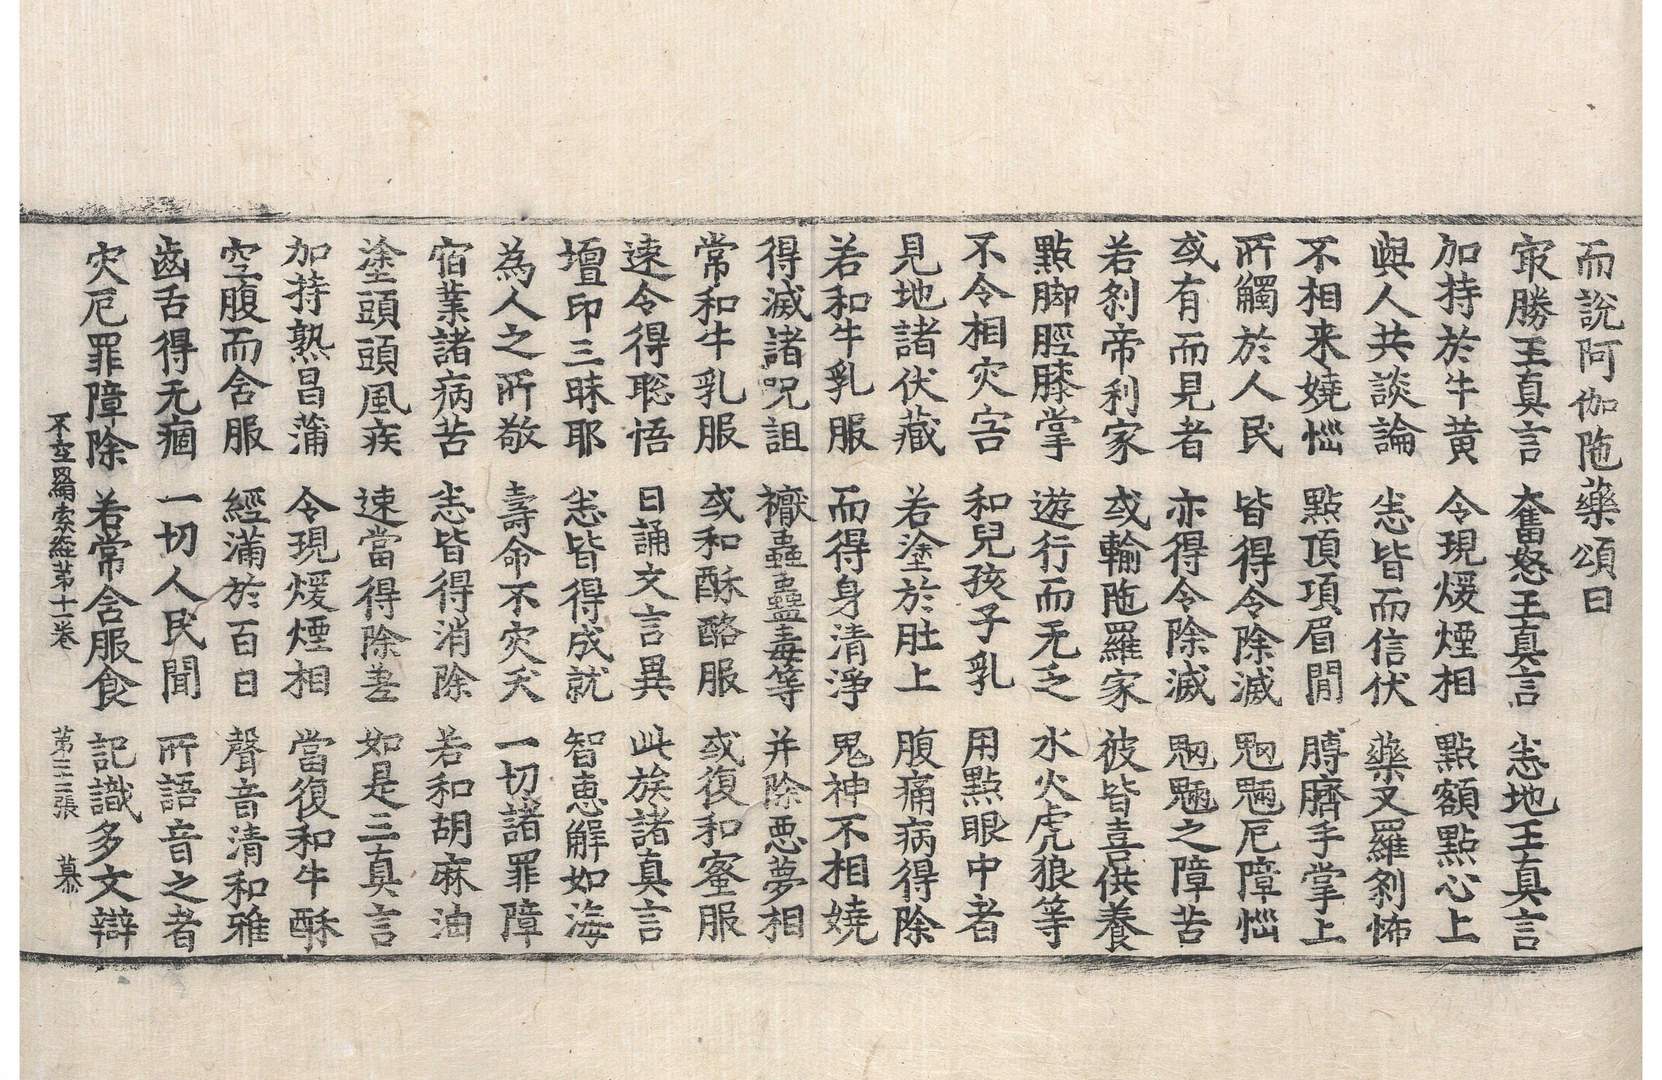 而說阿伽陁藥頌曰
㝡勝王真言 奮怒王真言 悉地王真言
加持於牛黄 令現煖煙相 點額點心上
與人共談論 悉皆而信伏 藥叉羅剎怖
不相来嬈惱 點頂項眉間 膞臍手掌上
所觸於人民 皆得令除滅 魍魎厄障惱
或有而見者 亦得令除滅 魍魎之障苦
若剎帝利家 或輸陁羅家 彼皆喜供養
點脚脛膝掌 遊行而无乏 水火虎狼等
不令相灾害 和兒孩子乳 用點眼中者
見地諸伏藏 若塗於肚上 腹痛病得除
若和牛乳服 而得身清淨 鬼神不相嬈
得滅諸呪詛 禳蟲蠱毒等 并除惡夢相
常和牛乳服 或和酥酪服 或復和蜜服
速令得聡悟 日誦文言異 此族諸真言
壇印三昧耶 悉皆得成就 智恵解如海
為人之所敬 壽命不灾夭 一切諸罪障
宿業諸病苦 悉皆得消除 若和胡麻油
塗頭頭風疾 速當得除差 如是三真言
加持熟昌蒲 令現煖煙相 當復和牛酥
空腹而含服 經滿於百日 聲音清和雅
齒舌得无痼 一切人民聞 所語音之者
灾厄罪障除 若常含服食 記識多文辯
不空羂索經第十一卷 第三張 慕